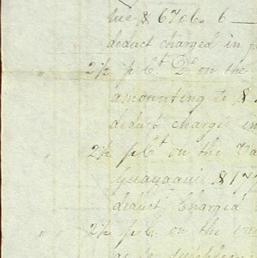 lue $ 6706. 6
deduct charged in
2½ p Ct Do on the
amounting to $
deduct charge in
2½ p Ct on the Va
Guayaquil $ 17
deduct Charged
2½ p Ct on the